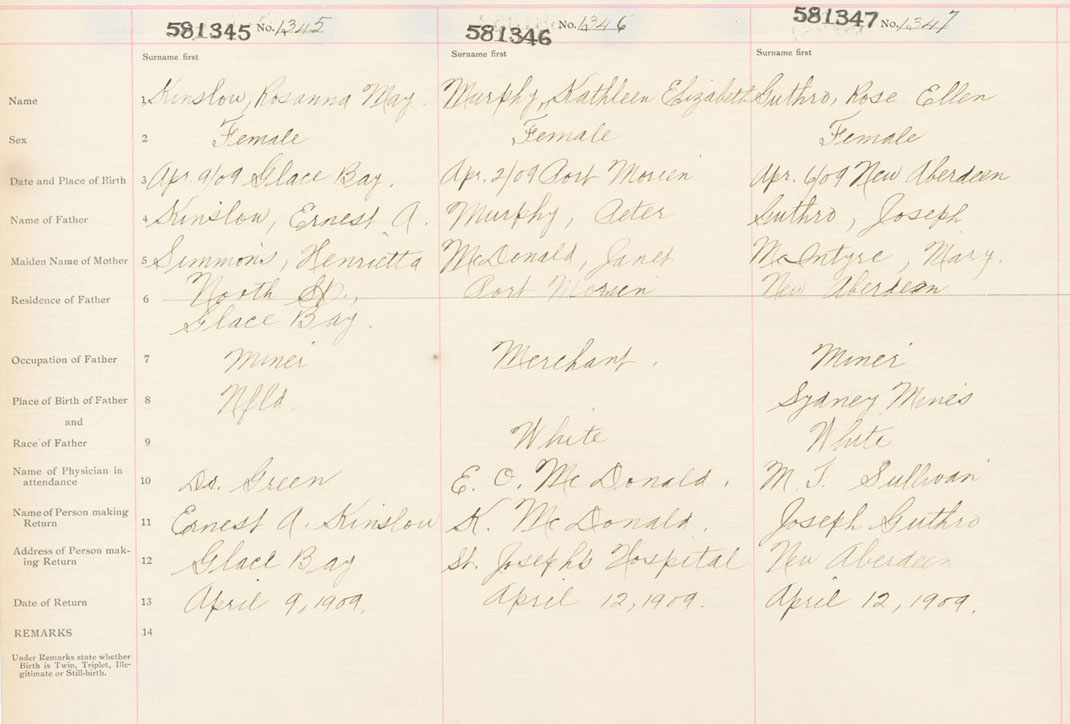 581345 No. 1345 581346 No. 1346 581347 No. 1347
Surname first Surname first Surname first
Name 1 Kinslow, Rosanna May. Murphy, Kathleen Elizabeth Guthro, Rose Ellen
Sex 2 Female Female Female
Date and Place of Birth 3 Apr. 9/09 Glace Bay. Apr. 2/09 Port Morien Apr. 6/09 New Aberdeen
Name of Father 4 Kinslow, Ernest A. Murphy, Peter Guthro, Joseph
Maiden Name of Mother 5 Simmons, Henrietta McDonald, Janet McIntyre, Mary.
Residence of Father 6 North St., Port Morien New Aberdeen
Glace Bay.
Occupation of Father 7 Miner Merchant. Miner
Place of Birth of Father 8 Nfld. Sydney Mines
and
Race of Father 9 White White
Name of Physician in
attendance 10 Dr. Green E. O. McDonald. M. T. Sullivan
Name of Person making
Return 11 Ernest A. Kinslow K. McDonald. Joseph Guthro
Address of Person mak-
ing Return 12 Glace Bay St. Joseph's Hospital New Aberdeen
Date of Return 13 April 9, 1909. April 12, 1909. April 12, 1909.
REMARKS 14
Under Remarks state whether
Birth is Twin, Triplet, Ille-
gitimate or Still-birth.